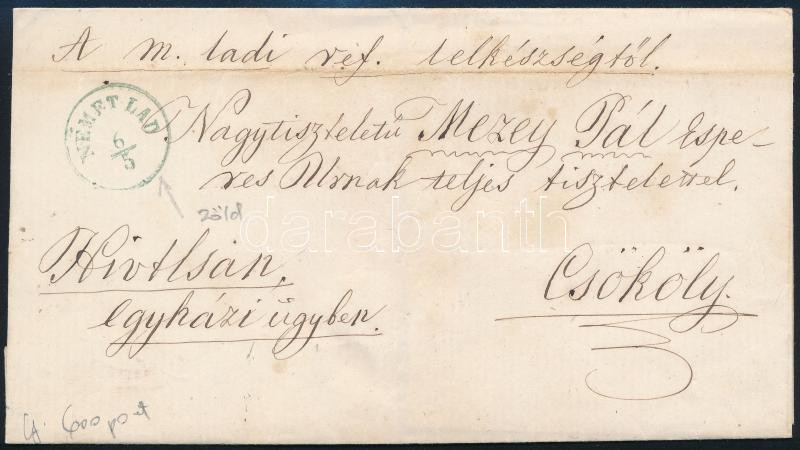 A m. ladi ref. lelkészségtől.
NÉMET LAD
6/5
Nagytiszteletű Mezey Pál Espe-
res Úrnak teljes tisztelettel.
zöld
darabanth
Hivtlsan,
egyházi ügyben.
Csököly.
600